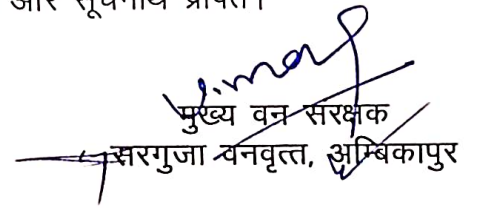 और सूचनार्थ प्रेषित।
मुख्य वन सरंक्षक
सरगुजा वनवृत्त, अम्बिकापुर